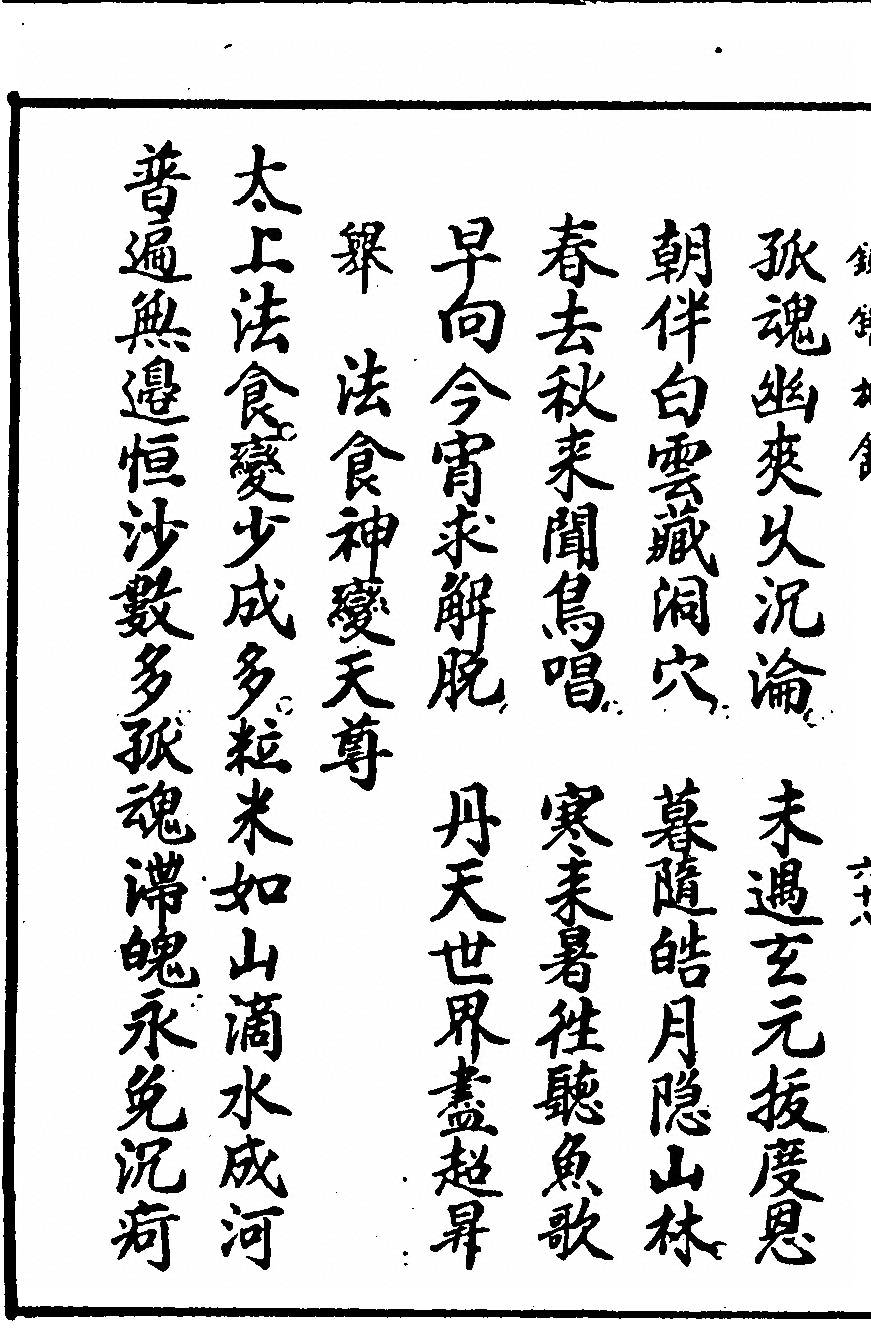 六十八
孤魂幽爽乆沉淪 未遇玄元拔度恩
朝伴白雲藏洞穴 暮隨皓月隐山林
春去秋来聞鳥唱 寒来暑徃聽魚歌
早向今宵求解脱 丹天世界盡超昇
舉 法食神變天尊
太上法食變少成多粒米如山滴水成河
普遍無邉恒沙數多孤魂滯魄永免沉疴